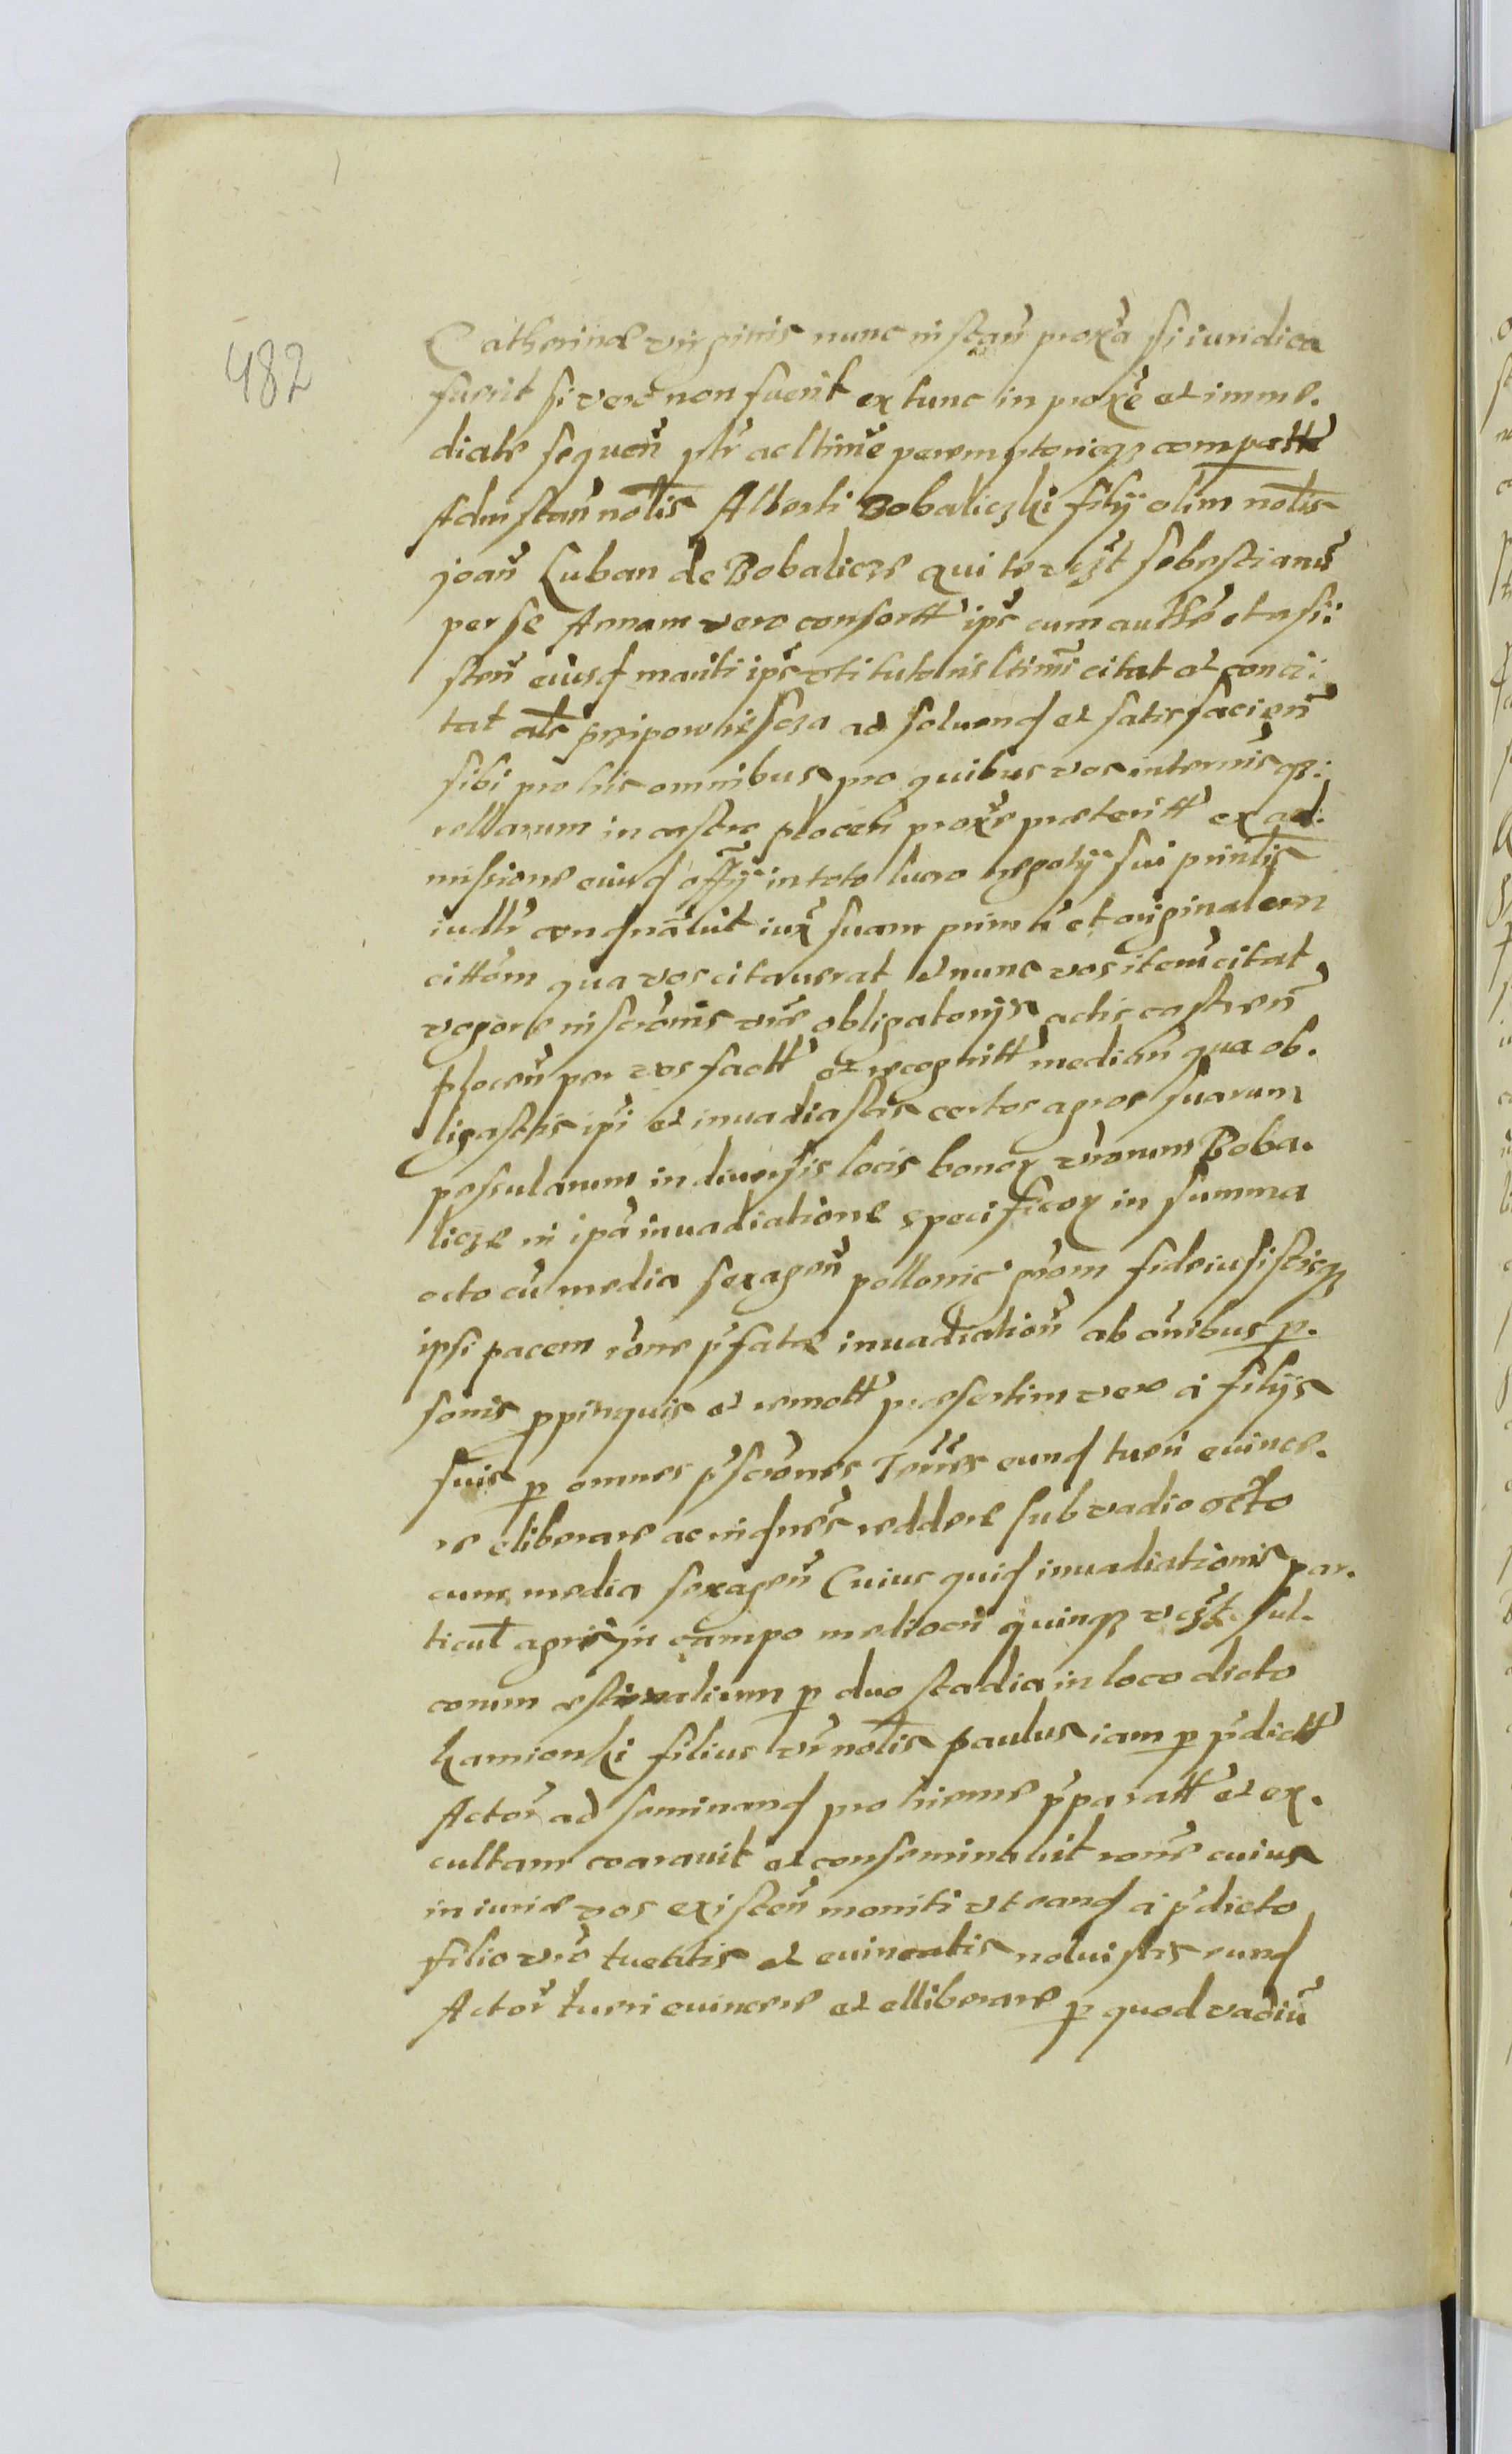 482
Catherinæ virginis nunc instan̄ proxa si iuridica
fuerit si vero non fuerit ex tunc in proxe et imme.
diate sequen̄ ptr ac ltime peremptorieqз comparttis
Ad instan̄ nolis Alberti Bobaliczki filij olim nolis
joan̄ Luban de Bobalicze qui te Sebestianū
per se Annam vero consortt ips cum authe et assi:
sten̄ eiusd mariti ips vti tutoris ltimi citat et conci:
tat als przipowiescza ad soluend et satisfacien̄
sibi pro his omnibus pro quibus vos in termis qз:
rellarum in castro plocen̄ proxe præteritt ex ad.
missione eiusd offij in toto lucro negotij sui prinlis
iudlr condnauit iux suam primā et originalem
cittōm qua vos citauerat et nunc vos iterū citat
vigore inscronis vrae obligatorijs actis castren̄
plocen̄ per vos factt et recognitt median̄ qua ob.
ligastis ipi et inuadiastis certos agros suarum
pessularum in diuersis locis bonoꝝ vrorum Boba.
licze in ipa inuadiatione specificoꝝ in summa
octo cū media sexagen̄ pollonic grom fideiussistisqз
ipsi pacem rone pfatæ inuadiation̄ ab omnibus p.
sonis ppinquis et remott præsertim vero à filijs
suis p omnes pscrones Trres eund tueri euince.
re eliberare ac indnes reddere sub vadio octo
cum media sexagen̄ Cuius quid inuadiationis par.
ticul agri in campo mediocri quinqз vczt sul.
corum æstiualium p duo stadia in loco dicto
kamionki filius vr nolis paulus iam p pdictt
Actor ad seminand pro hieme pparatt et ex.
cultam coarauit et conseminauit rone cuius
iniuriæ vos existen̄ moniti vt eand à pdicto
filio vro tuetis et euincatis noluistis eund
Actor tueri euincere et elliberare p quod vadiū